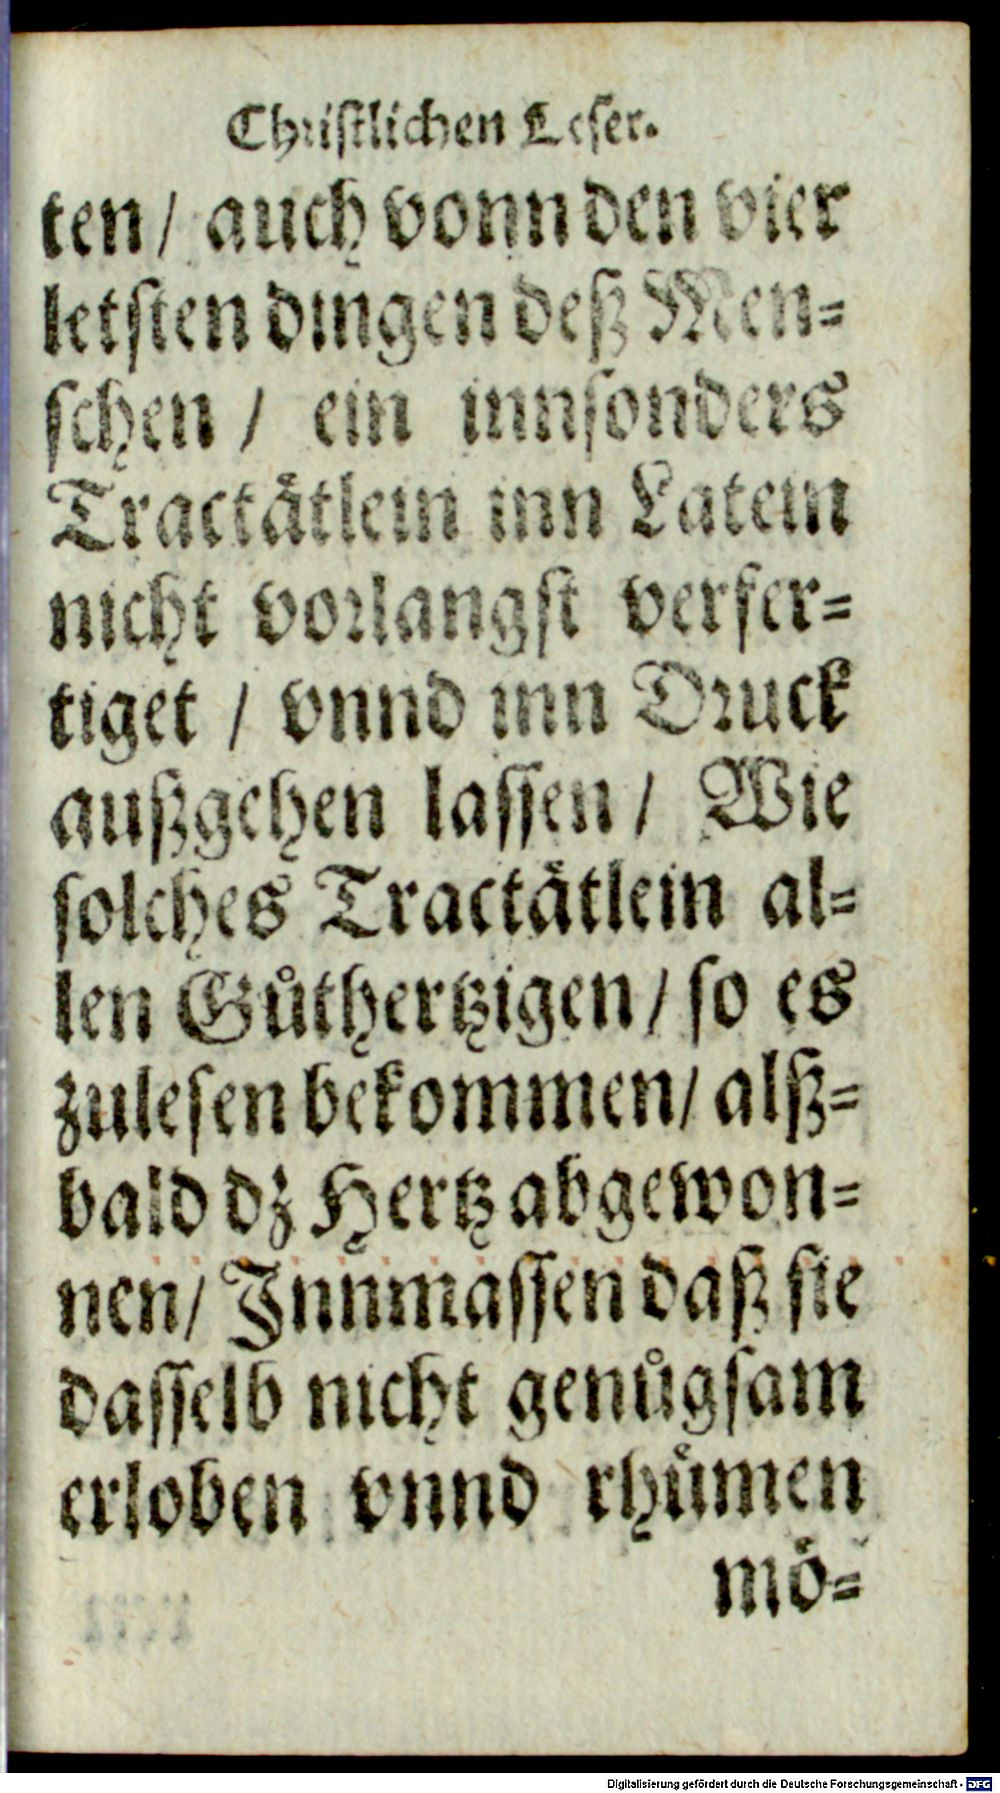 Christlichen Leser.
ten/ auch vonn den vier
letsten dingen deß Men-
schen / ein innsonders
Tractåtlein inn Latein
nicht vorlangst verfer-
tiget / vnnd inn Druck
außgehen lassen / Wie
solches Tractåtlein al-
len Gůthertzigen / so es
zulesen bekommen/ alß-
bald dz Hertz abgewon-
nen/ Innmassen daß sie
dasselb nicht genůgsam
erloben vnnd rhůmen
mö-
Digitalisierung gefördert durch die Deutsche Forschungsgemeinschaft - DFG